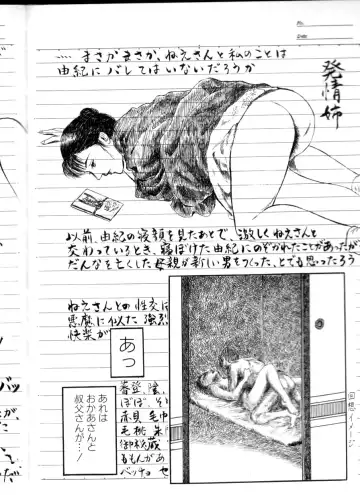 ‥‥まさかまさか、ねえさんと私のことは
由紀にバレてはいないだろうか
発情姉
以前、由紀の寝顔を見たあとで、激しくねえさんと
交わっているとき、寝ぼけた由紀にのぞかれたことがあったが
だんなを亡くした母親が新しい男をつくった、とでも思ったろう
ねえさんとの性交は
悪魔に似た強烈
快楽が
あっ
あれは
おかあさんと
叔父さんが…!
回想イメージ
春登、陰
ぼぼ、そ
赤貝 毛巾
毛桃 朱
バッチョ セ